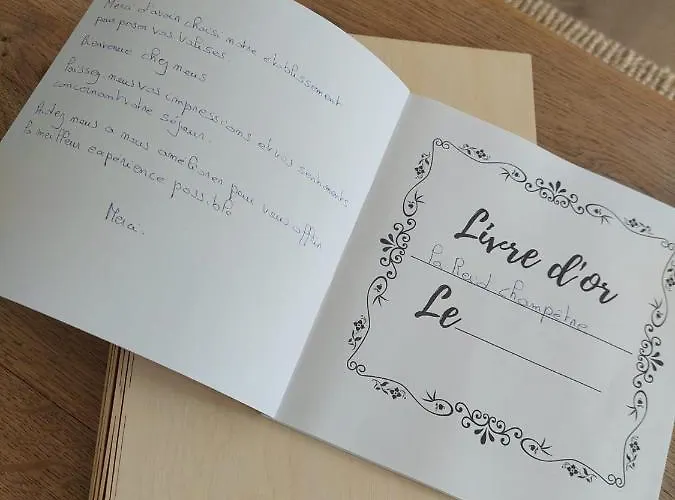 Merci d'avoir choisi notre établissement
pour poser vos valises.
Bienvenue chez nous
Laissez nous vos impressions et vos sentiments
concernant votre séjour.
Aidez nous a nous améliorer pour vous offrir
la meilleur experience possible
Merci.
Livre d'or
Le Reid champêtre
Le